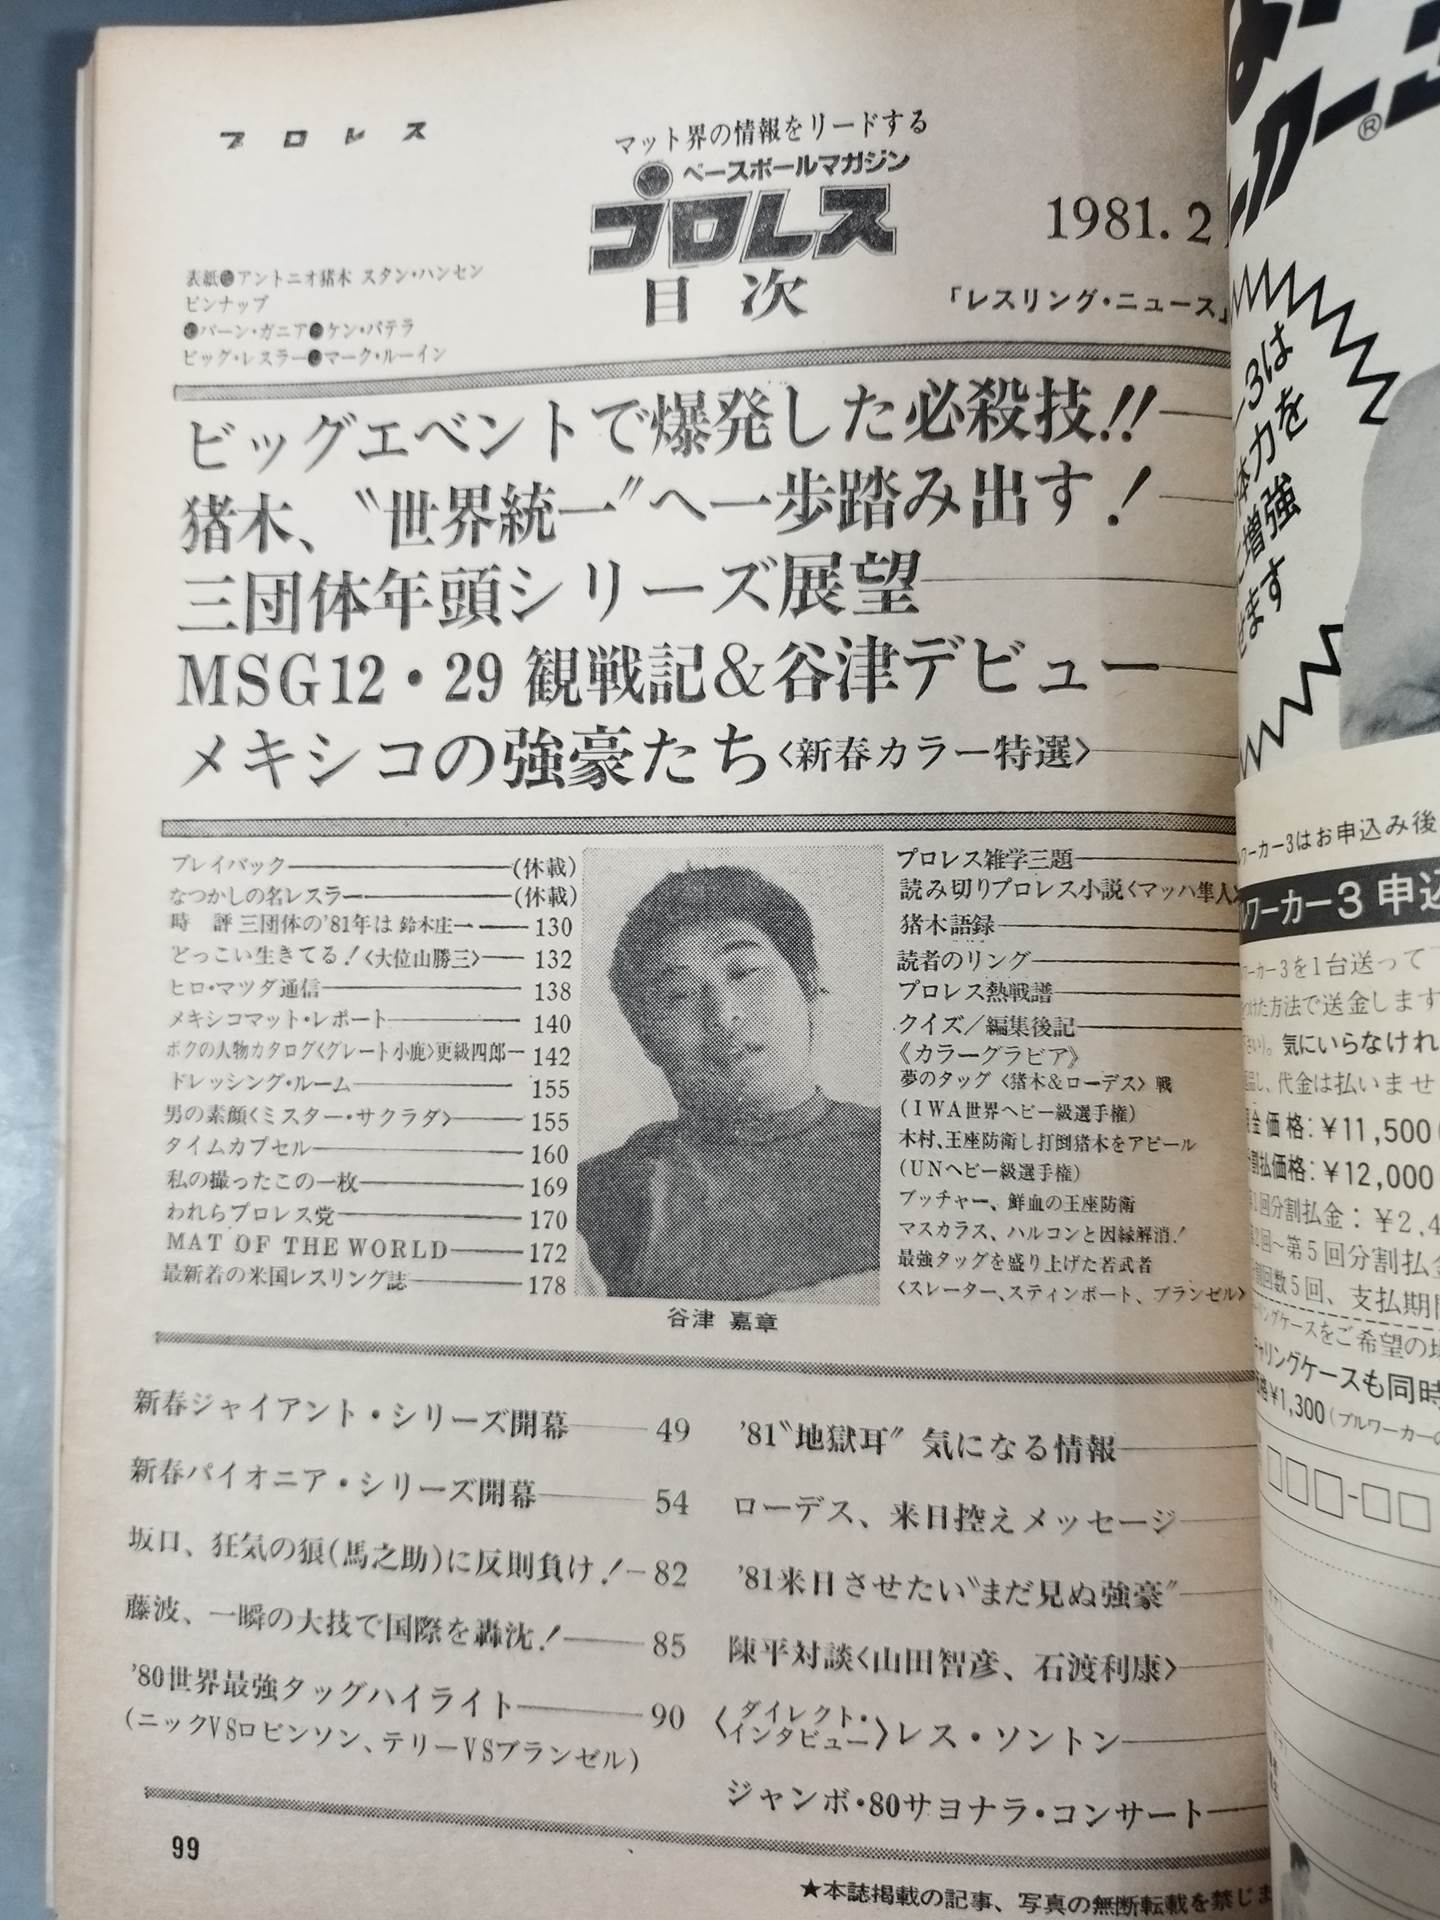 プロレス
マット界の情報をリードする
ベースボールマガジン
プロレス
目次
1981. 2
「レスリング・ニュース」
表紙●アントニオ猪木 スタン・ハンセン
ピンナップ
●バーン・ガニア●ケン・パテラ
ビッグ・レスラー●マーク・ルーイン
ビッグエベントで爆発した必殺技!!
猪木、〝世界統一〟へ一歩踏み出す!
三団体年頭シリーズ展望
MSG12・29 観戦記&谷津デビュー
メキシコの強豪たち〈新春カラー特選〉
プレイバック――(休載)
なつかしの名レスラー――(休載)
時 評 三団体の'81年は 鈴木庄一――130
どっこい生きてる!〈大位山勝三〉――132
ヒロ・マツダ通信――138
メキシコマット・レポート――140
ボクの人物カタログ〈グレート小鹿〉更級四郎―142
ドレッシング・ルーム――155
男の素顔〈ミスター・サクラダ〉――155
タイムカプセル――160
私の撮ったこの一枚――169
われらプロレス党――170
MAT OF THE WORLD――172
最新着の米国レスリング誌――178
谷津 嘉章
プロレス雑学三題――
読み切りプロレス小説〈マッハ隼人〉
猪木語録――
読者のリング――
プロレス熱戦譜――
クイズ/編集後記――
《カラーグラビア》
夢のタッグ〈猪木&ローデス〉戦
(IWA世界ヘビー級選手権)
木村、王座防衛し打倒猪木をアピール
(UNヘビー級選手権)
ブッチャー、鮮血の王座防衛
マスカラス、ハルコンと因縁解消!
最強タッグを盛り上げた若武者
〈スレーター、スティンボート、ブランゼル〉
新春ジャイアント・シリーズ開幕――49
新春パイオニア・シリーズ開幕――54
坂口、狂気の狼(馬之助)に反則負け!―82
藤波、一瞬の大技で国際を轟沈!――85
'80世界最強タッグハイライト――90
(ニックVSロビンソン、テリーVSブランゼル)
'81〝地獄耳〟気になる情報――
ローデス、来日控えメッセージ――
'81来日させたい〝まだ見ぬ強豪〟――
陳平対談〈山田智彦、石渡利康〉――
〈ダイレクト・インタビュー〉レス・ソントン――
ジャンボ・80サヨナラ・コンサート――
99
★本誌掲載の記事、写真の無断転載を禁じま
ーカー®
ー3は
体力を
増強
せます
ワーカー3はお申込み後
ワーカー3 申込
ワーカー3を1台送って
けた方法で送金します
気にいらなけれ
品し、代金は払いませ
金価格:¥11,500
割払価格:¥12,000
1回分割払金:¥2,4
2回〜第5回分割払金
割回数5回、支払期間
リングケースをご希望の
ャリングケースも同時
格¥1,300(ブルワーカーの